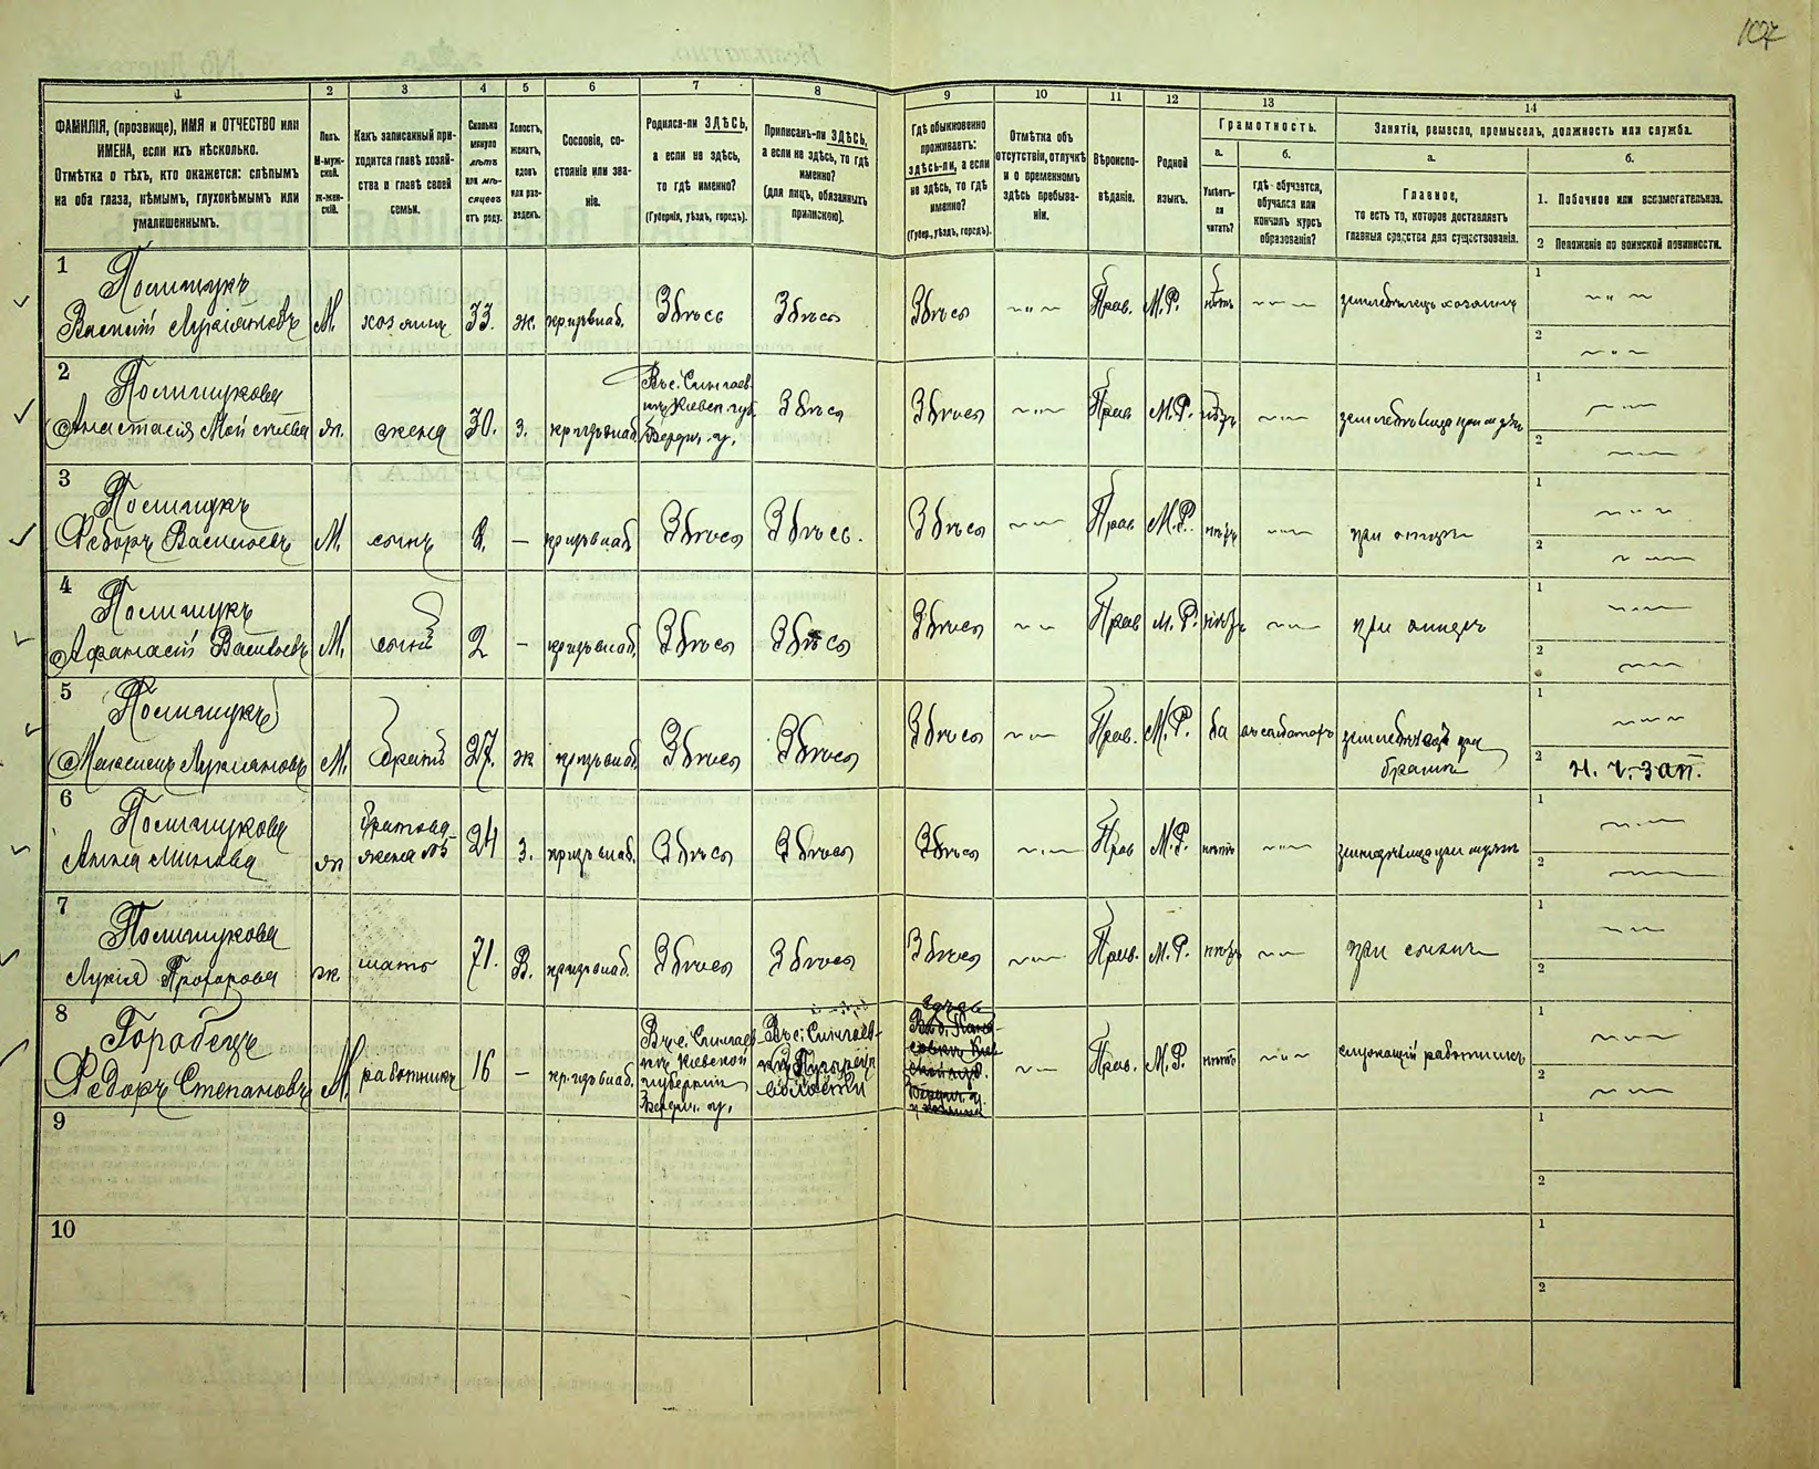 107
1
2
3
4
5
6
7
8
9
10
11
12
13
14
ФАМИЛІЯ, (прозвище), ИМЯ и ОТЧЕСТВО или
ИМЕНА, если ихъ нѣсколько.
Отмѣтка о тѣхъ, кто окажется: слѣпымъ
на оба глаза, нѣмымъ, глухонѣмымъ или
умалишеннымъ.
Полъ.
М-муж-
ской.
Ж-жен-
скій.
Какъ записанный при-
ходится главѣ хозяй-
ства и главѣ своей
семьи.
Сколько
минуло
лѣтъ
или мѣ-
сяцевъ
отъ роду.
Холостъ,
женатъ,
вдовъ
или раз-
веденъ.
Сословіе, со-
стояніе или зва-
ніе.
Родился-ли ЗДѢСЬ,
а если не здѣсь,
то гдѣ именно?
(Губернія, уѣздъ, городъ).
Приписанъ-ли ЗДѢСЬ,
а если не здѣсь, то гдѣ
именно?
(для лицъ, обязанныхъ
припискою).
Гдѣ обыкновенно
проживаетъ:
здѣсь-ли, а если
не здѣсь, то гдѣ
именно?
(Губер., уѣздъ, городъ).
Отмѣтка объ
отсутствіи, отлучкѣ
и о временномъ
здѣсь пребыва-
ніи.
Вѣроиспо-
вѣданіе.
Родной
языкъ.
Грамотность.
а.
Умѣетъ-
ли
читать?
б.
гдѣ обучается,
обучался или
кончилъ курсъ
образованія?
Занятіе, ремесло, промыселъ, должность или служба.
а.
Главное,
то есть то, которое доставляетъ
главныя средства для существованія.
б.
1. Побочное или вспомогательное.
2 Положеніе по воинской повинности.
1
Полищукъ
Василій Лукіяновъ М. хозяинъ 33. ж. кр.изъ влад. Здѣсь Здѣсь Здѣсь Прав. М.Р. нѣтъ земледѣлецъ хозяинъ
1
2
2
Полищукова
Анастасія Мойсеева ж. жена 30. З. кр.изъ влад. Въ с. Спичин- Кіевск. губ. Бердич. у. Здѣсь Здѣсь Прав М.Р. нѣтъ
1
2
3
Полищукъ
Ѳедоръ Васильевъ М. сынъ 8. — кр.изъ влад. Здѣсь Здѣсь. Здѣсь Прав М.Р. нѣтъ при отцѣ
1
2
4
Полищукъ
Афанасій Васильевъ М. сынъ 2 — кр.изъ влад. Здѣсь Здѣсь Здѣсь Прав М.Р. нѣтъ при отцѣ
1
2
5
Полищукъ
Максимъ Лукіановъ М. братъ 27. ж кр.изъ влад. Здѣсь Здѣсь Здѣсь Прав. М.Р. да при
братѣ
1
2 Н. ч. зап.
6
Полищукова
Анна ж братова
жена №5 24 З. кр.изъ влад. Здѣсь Здѣсь Здѣсь Прав М.Р. нѣтъ при мужѣ
1
2
7
Полищукова
Лукія Прохорова ж. мать 71. В. кр.изъ влад. Здѣсь Здѣсь Здѣсь Прав. М.Р. нѣтъ при сынѣ
1
2
8
Горобецъ
Ѳедоръ Степановъ М. работникъ 16 — кр.изъ влад.
Кіевской
губерніи
Бердич. у.
волости
Прав. М.Р. нѣтъ служащій работникъ
1
2
9
1
2
10
1
2